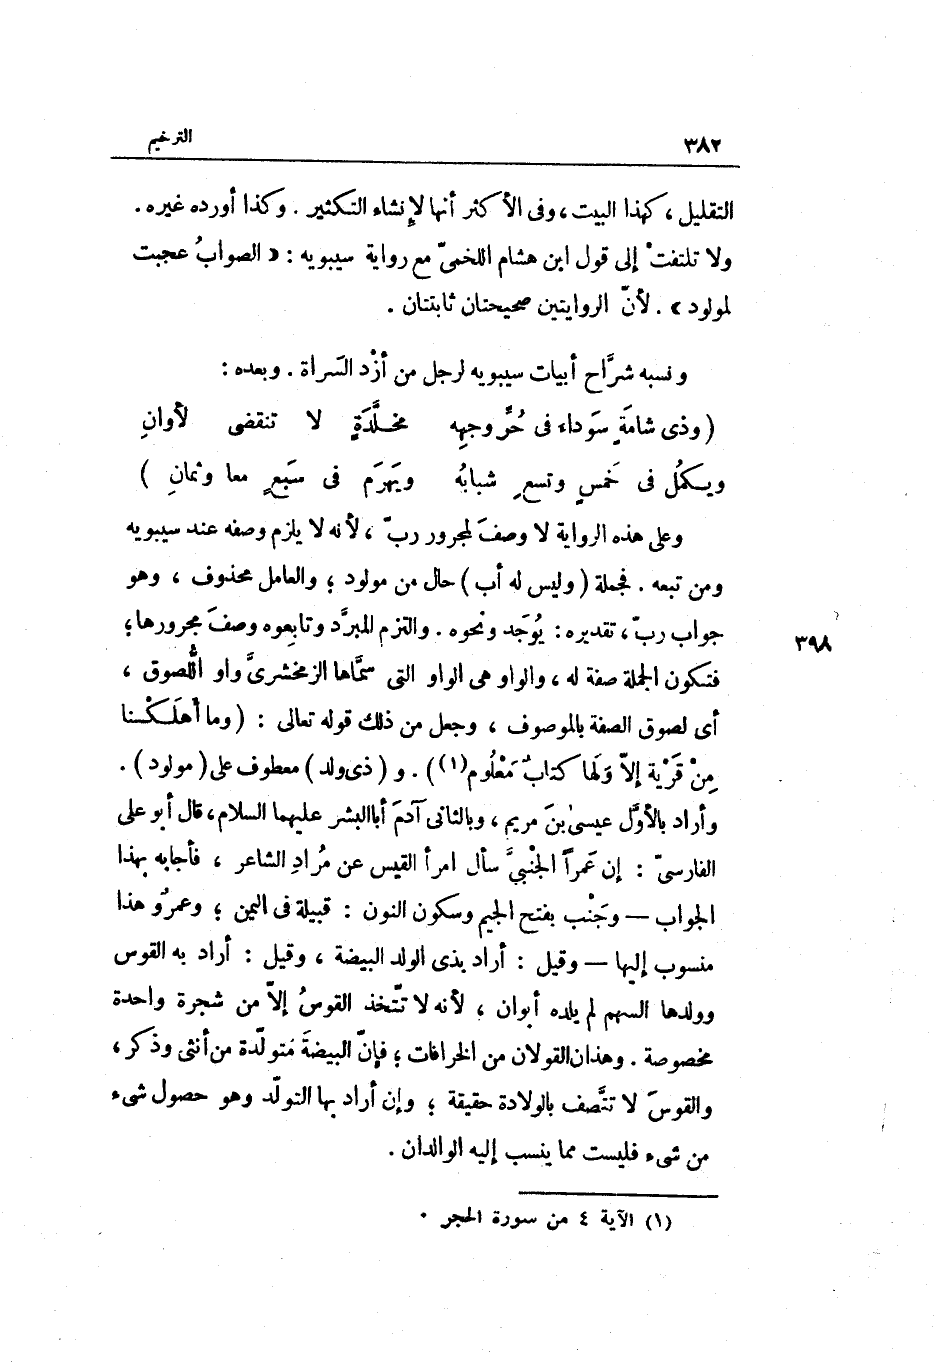 ٣٨٢ الترخيم
التقليل ، كهذا البيت ، وفى الأكثر أنها لإنشاء التكثير . وكذا أورده غيره .
ولا تلتفتْ إلى قول ابن هشام اللخمىّ مع رواية سيبويه : « الصوابُ عجبت
لمولود » . لأنّ الروايتين صحيحتان ثابتتان .
ونسبه شرَّاح أبيات سيبويه لرجل من أزْد السَراة . وبعده :
( وذى شامَةٍ سَوداء فى حُرِّ وجهِه مخلَّدَةٍ لا تنقضى لأوانِ
ويكمُل فى خَمسٍ وتسعٍ شبابُه ويَهرَم فى سَبَعٍ معا وثمانِ )
وعلى هذه الرواية لا وصفَ لمجرور ربّ ، لأنه لا يلزم وصفه عند سيبويه
ومن تبعه . فجملة ( وليس له أب ) حال من مولود ؛ والعامل محذوف ، وهو
جواب ربّ ، تقديره : يُوجَد ونحوه . والتزم المبرَّد وتابعوه وصفَ مجرورها ؛
٣٩٨
فتكون الجملة صفة له ، والواو هى الواو التى سمَّاها الزمخشرىّ واو اللُّصوق ،
أى لصوق الصفة بالموصوف ، وجعل من ذلك قوله تعالى : ( وما أَهلَكْنا
مِنْ قَرْيةٍ إلاّ وَلَها كتابٌ مَعْلُوم(١) ) . و ( ذى ولد ) معطوف على ( مولود ) .
وأراد بالأوَّل عيسىٰ بنَ مريم ، وبالثانى آدمَ أباالبشر عليهما السلام ، قال أبو على
الفارسىّ : إن عَمراً الجَنْبىَّ سأل امرأ القيس عن مُرادِ الشاعر ، فأجابه بهذا
الجواب — وجَنْب بفتح الجيم وسكون النون : قبيلة فى اليمن ؛ وعمرٌو هذا
منسوب إليها — وقيل : أراد بذى الولد البيضة ، وقيل : أراد به القوس
وولدها السهم لم يلده أبوان ، لأنه لا تتّخذ القوسُ إلاّ من شجرة واحدة
مخصوصة . وهذان القولان من الخرافات ؛ فإنّ البيضةَ مَتولّدة من أنثى وذكر ،
والقوسَ لا تتَّصف بالولادة حقيقة ؛ وإن أراد بها التولّد وهو حصول شىء
من شىء فليست مما ينسب إليه الوالدان .
(١) الآية ٤ من سورة الحجر .